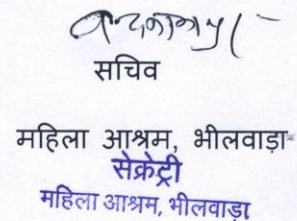 सचिव
महिला आश्रम, भीलवाड़ा
सेक्रेट्री
महिला आश्रम, भीलवाड़ा